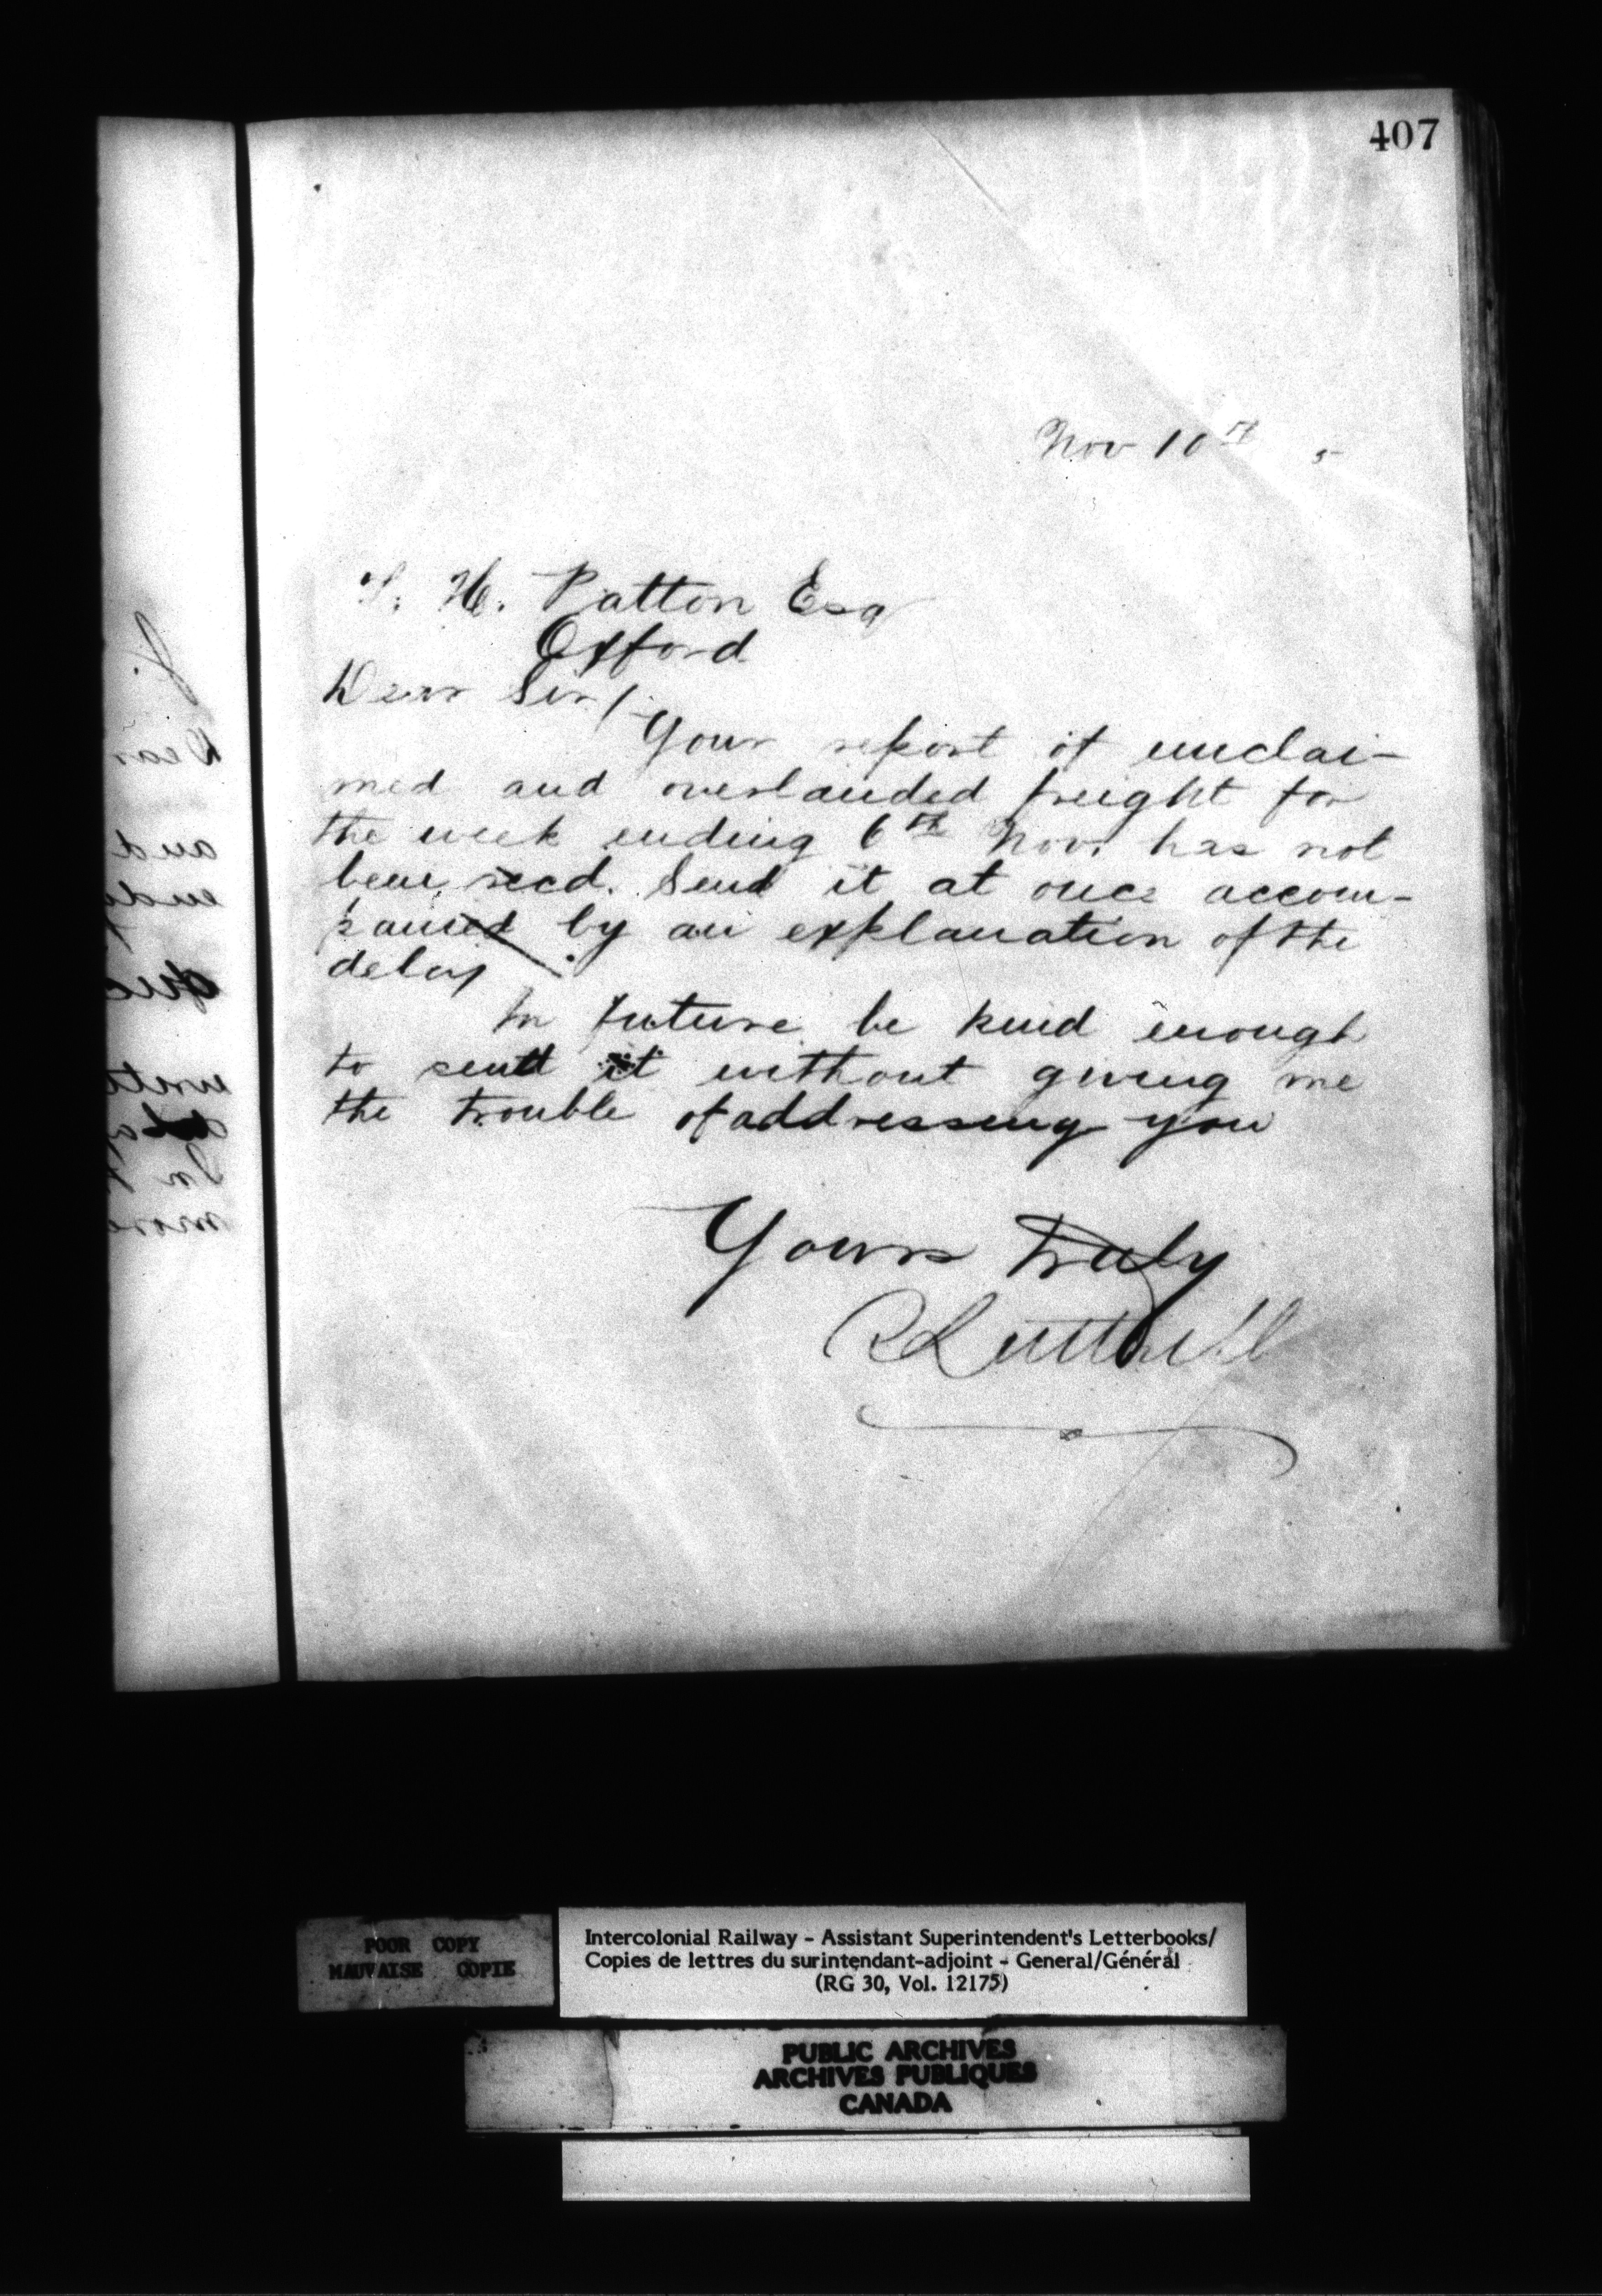 407
Nov 10th 5
H. Patton Esq
Oxford
Dear Sir/
Your report of unclai-
med and overlanded freight for
the week ending 6th Nov. has not
been recd. Send it at once accom-
panied by an explanation of the
delay.
In future be kind enough
to send it without giving me
the trouble of addressing you
Yours Truly
R Luttrell
POOR COPY
MAUVAISE COPIE
Intercolonial Railway - Assistant Superintendent's Letterbooks/
Copies de lettres du surintendant-adjoint - General/Général
(RG 30, Vol. 12175)
PUBLIC ARCHIVES
ARCHIVES PUBLIQUES
CANADA